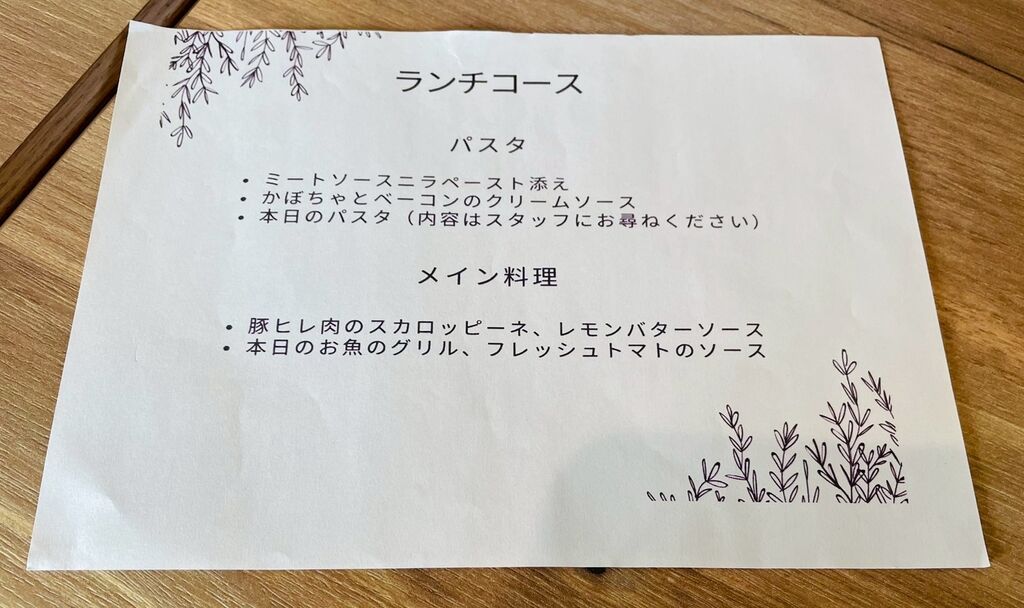 ランチコース
パスタ
• ミートソースニラペースト添え
• かぼちゃとベーコンのクリームソース
• 本日のパスタ（内容はスタッフにお尋ねください）
メイン料理
• 豚ヒレ肉のスカロッピーネ、レモンバターソース
• 本日のお魚のグリル、フレッシュトマトのソース